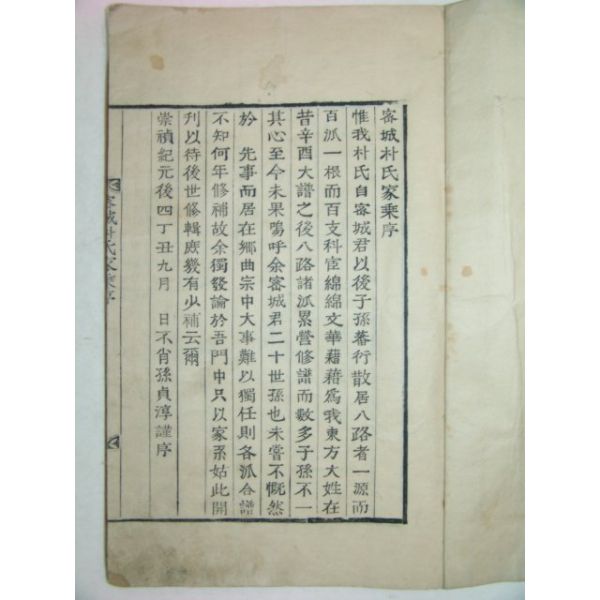 密城朴氏家乘序
惟我朴氏自密城君以後子孫蕃衍散居八路者一源而
百派一根而百支科宦綿綿文華藉藉爲我東方大姓在
昔辛酉大譜之後八路諸派累營修譜而數多子孫不一
其心至今未果嗚呼余密城君二十世孫也未嘗不慨然
於　先事而居在鄉曲宗中大事難以獨任則各派合譜
不知何年修補故余獨發論於吾門中只以家系姑此開
刊以待後世修輯庶幾有少補云爾
崇禎紀元後四丁丑九月　日不肖孫貞淳謹序
密城朴氏家乘序